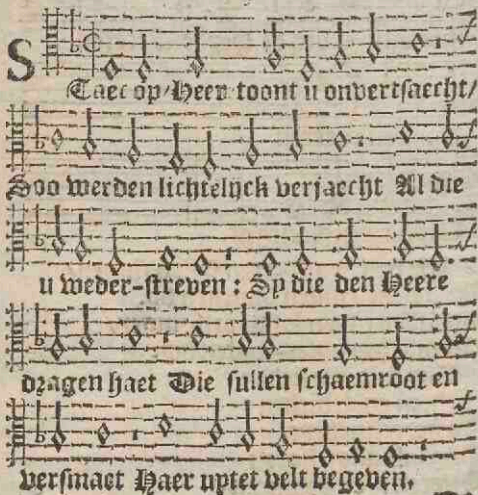 STaet op/Heer toont u onvertsaecht/
Soo werden lichtelyck verjaecht Al die
u weder-streven: Sy die den Heere
dragen haet Die sullen schaemroot en
versmaet Haer uytet velt begeven.